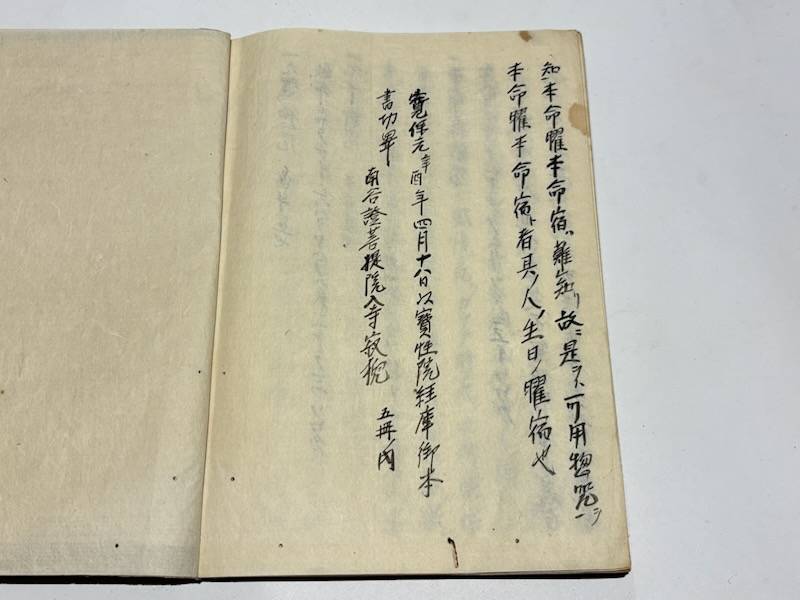 知本命曜本命宿ハ難知リ故ニ是ヲハ可用惣咒ヲ一
本命曜本命宿ト者其ノ人ノ生日ノ曜宿也
寛保元辛酉年四月十八日以寳性院経庫御本
書功畢
南谷證菩提院入寺寂 五冊内